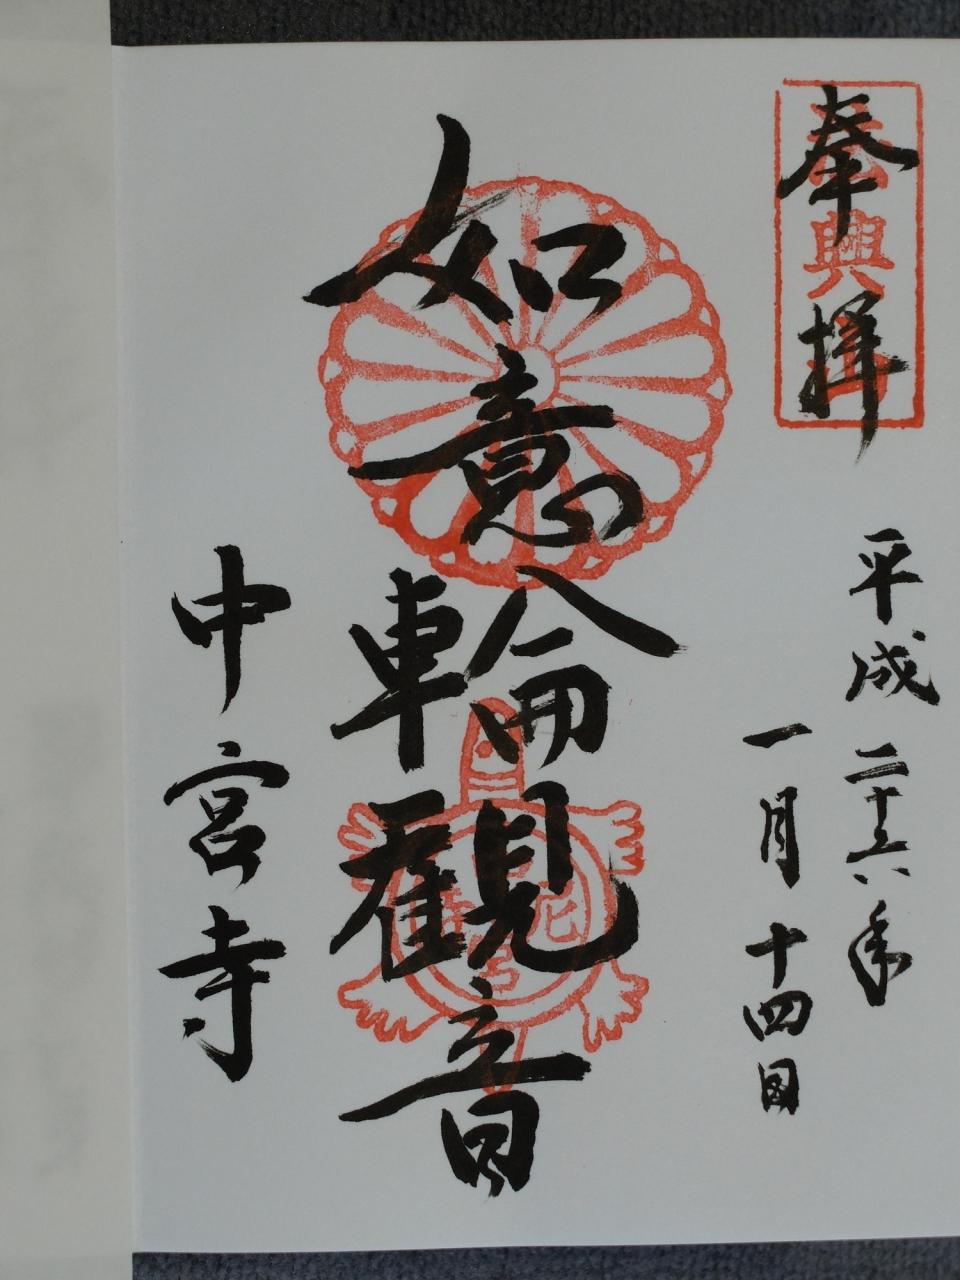 奉拝
興
平成二十六年
一月十四日
如意輪觀音
中宮寺